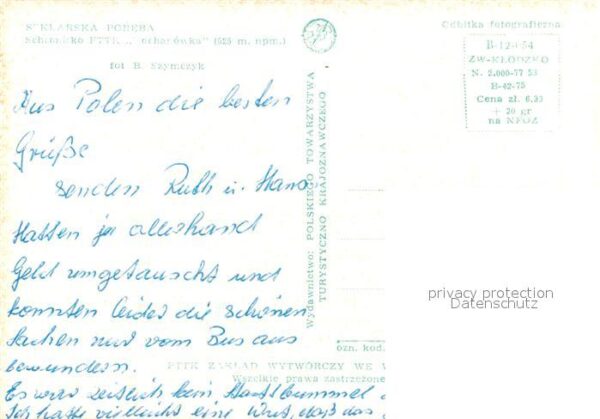 SZKLARSKA PORĘBA
Schronisko PTTK „Kochanówka" (525 m. npm.)
fot B. Szymczyk
Odbitka fotograficzna
B-12-I-54
ZW-KŁODZKO
N. 2.000-77 53
B-42-75
Cena zł. 6.33
+ 20 gr
na NFOZ
Wydawnictwo: POLSKIEGO TOWARZYSTWA
TURYSTYCZNO KRAJOZNAWCZEGO
Aus Polen die besten
Grüße
senden Ruth u. Hans
Hatten ja allerhand
Geld umgetauscht und
konnten leider die schönen
Sachen nur vom Bus aus
bewundern.
Es war zeitlich kein Stadtbummel
Ich hatte vielleicht eine Wut, daß das
ozn. kod.
PTTK ZAKŁAD WYTWÓRCZY WE W
Wszelkie prawa zastrzeżone
privacy protection
Datenschutz